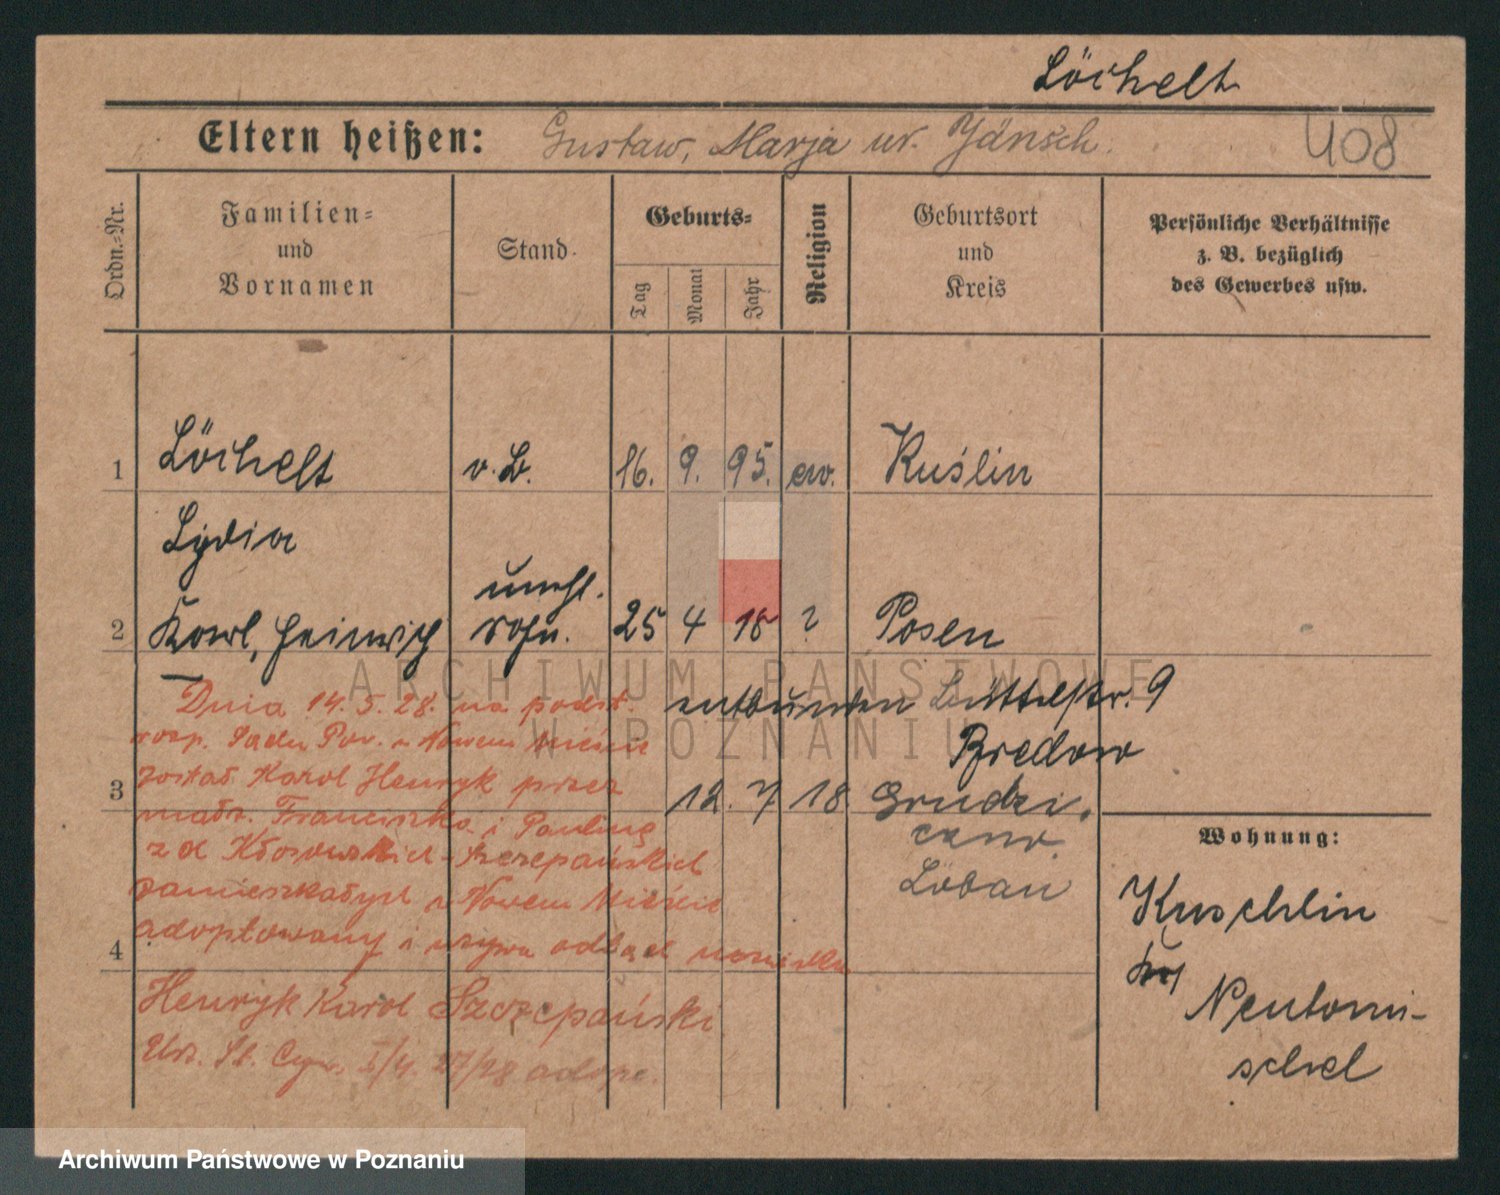 Löchelt
Eltern heißen: Gustaw, Marja ur. Jänsch.
408
Ordn.=Nr.
Familien=
und
Vornamen
Stand.
Geburts=
Tag
Monat
Jahr
Religion
Geburtsort
und
Kreis
Persönliche Verhältnisse
z. B. bezüglich
des Gewerbes usw.
1 Löchelt o. B. 16. 9. 95. ew. Kuślin
Lydia
unehl.
2 Karl, Heinrich Sohn. 25 4 18 ? Posen
Dnia 14.5.28. na podst.
entbunden Lüttelstr. 9
rozp. Sądu Pow. w Nowem Mieście
Bredow
został Karol Henryk przez
3 12. 7 18 Grudzi.
małż. Franciszka i Paulinę
z d. Kłosowskich Szczepańskich
Löbau
zamieszkałych w Nowem Mieście
4 adoptowany i używa odtąd nazwisko
Henryk Karol Szczepański
Urz. St. Cyw. I/4. 27/28 adopc.
Wohnung:
Kuschlin
Krs
Neutomi-
schel
ARCHIWUM PAŃSTWOWE
W POZNANIU
Archiwum Państwowe w Poznaniu